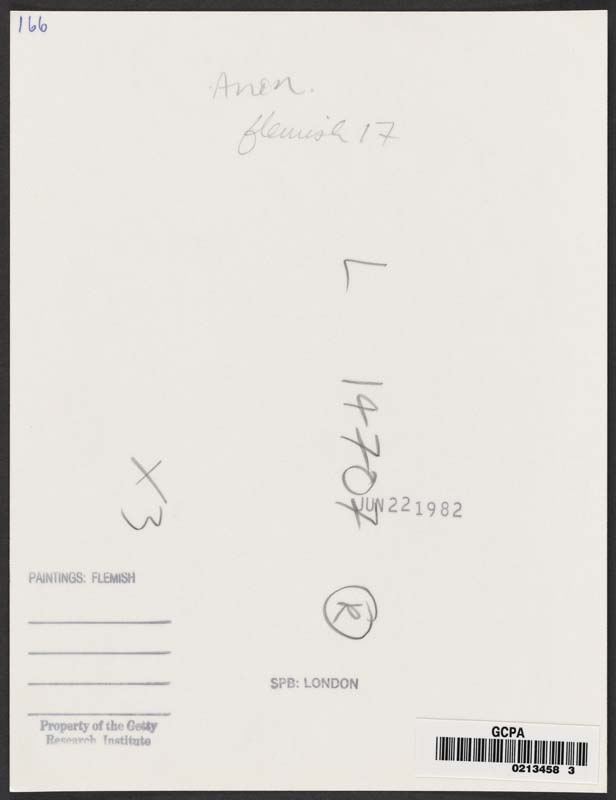 166
Anon.
flemish 17
L 14707
JUN 22 1982
X3
PAINTINGS: FLEMISH
R
SPB: LONDON
Property of the Getty
Research Institute
GCPA
0213458 3